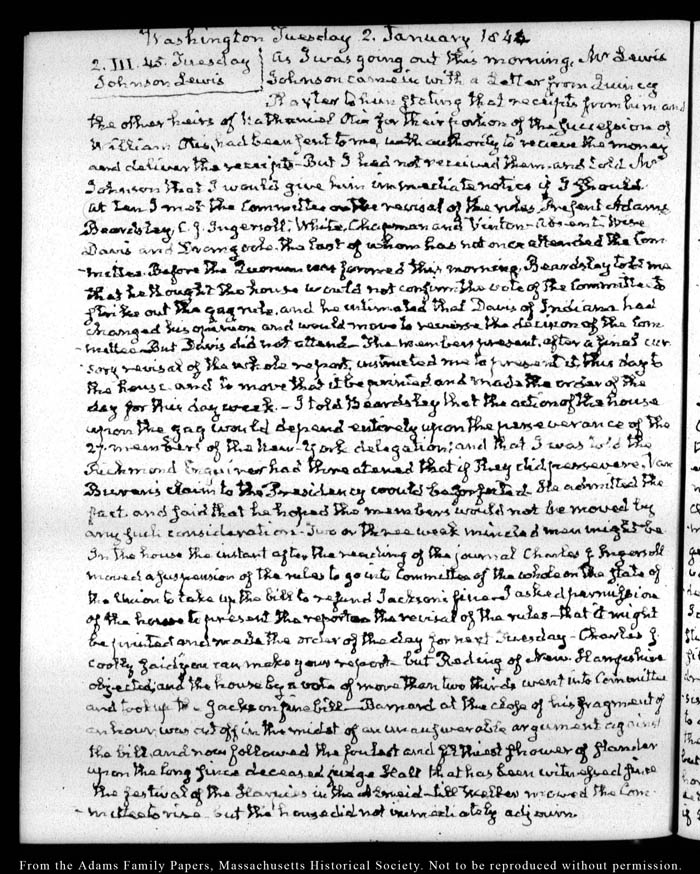 Washington Tuesday 2. January 1844
2. III. 45. Tuesday
Johnson Lewis
As I was going out this morning, Mr Lewis
Johnson came in with a Letter from Quincy
Thaxter to him stating that receipts from him and
the other heirs of Nathaniel Otis for their portion of the succession of
William Otis, had been sent to me, with authority to receive the money
and deliver the receipts. But I had not received them and told Mr
Johnson that I would give him immediate notice if I should.
At ten I met the Committee on the revisal of the rules, Present Adams
Beardsley, C. J. Ingersoll, White, Chapman and Vinton. Absent Wise
Davis and Dromgoole. the last of whom has not once attended the Com-
mittee. Before the Quorum was formed this morning, Beardsley told me
that he thought the house would not confirm the vote of the Committee to
strike out the gag rule, and he intimated that Davis of Indiana had
changed his opinion and would move to reverse the decision of the Com-
-mittee. But Davis did not attend. The members present, after a final cur-
sory revisal of the whole report, instructed me to present it, this day to
the house. and to move that it be printed and made the order of the
day for this day week. – I told Beardsley that the action of the house
upon the gag would depend entirely upon the perseverance of the
27. members of the New-York delegation; and that I was told the
Richmond Enquirer had threatened that if they did persevere, Van
Buren's claim to the Presidency would be forfeited. He admitted the
fact. and said that he hoped the members would not be moved by
any such consideration. Two or three weak minded men might be
In the house the instant after the reading of the journal Charles J. Ingersoll
moved a suspension of the rules to go into Committee of the whole on the state of
the Union to take up the bill to refund Jackson's fine. I asked permission
of the house to present the report on the revisal of the rules – that it might
be printed and made the order of the day for next Tuesday – Charles J.
coolly said you can make your report – but Reding of New Hampshire
objected, and the house by a vote of more than two thirds went into Committee
and took up the Jackson fine bill – Barnard at the close of his fragment of
an hour was cut off in the midst of an unanswerable argument against
the bill. and now followed the foulest and filthiest shower of slander
upon the long since deceased judge Hall that has been witnessed since
the festival of the Harpies in the Æneid – till Weller moved the Com-
-mittee to rise – but the house did not immediately adjourn.
From the Adams Family Papers, Massachusetts Historical Society. Not to be reproduced without permission.